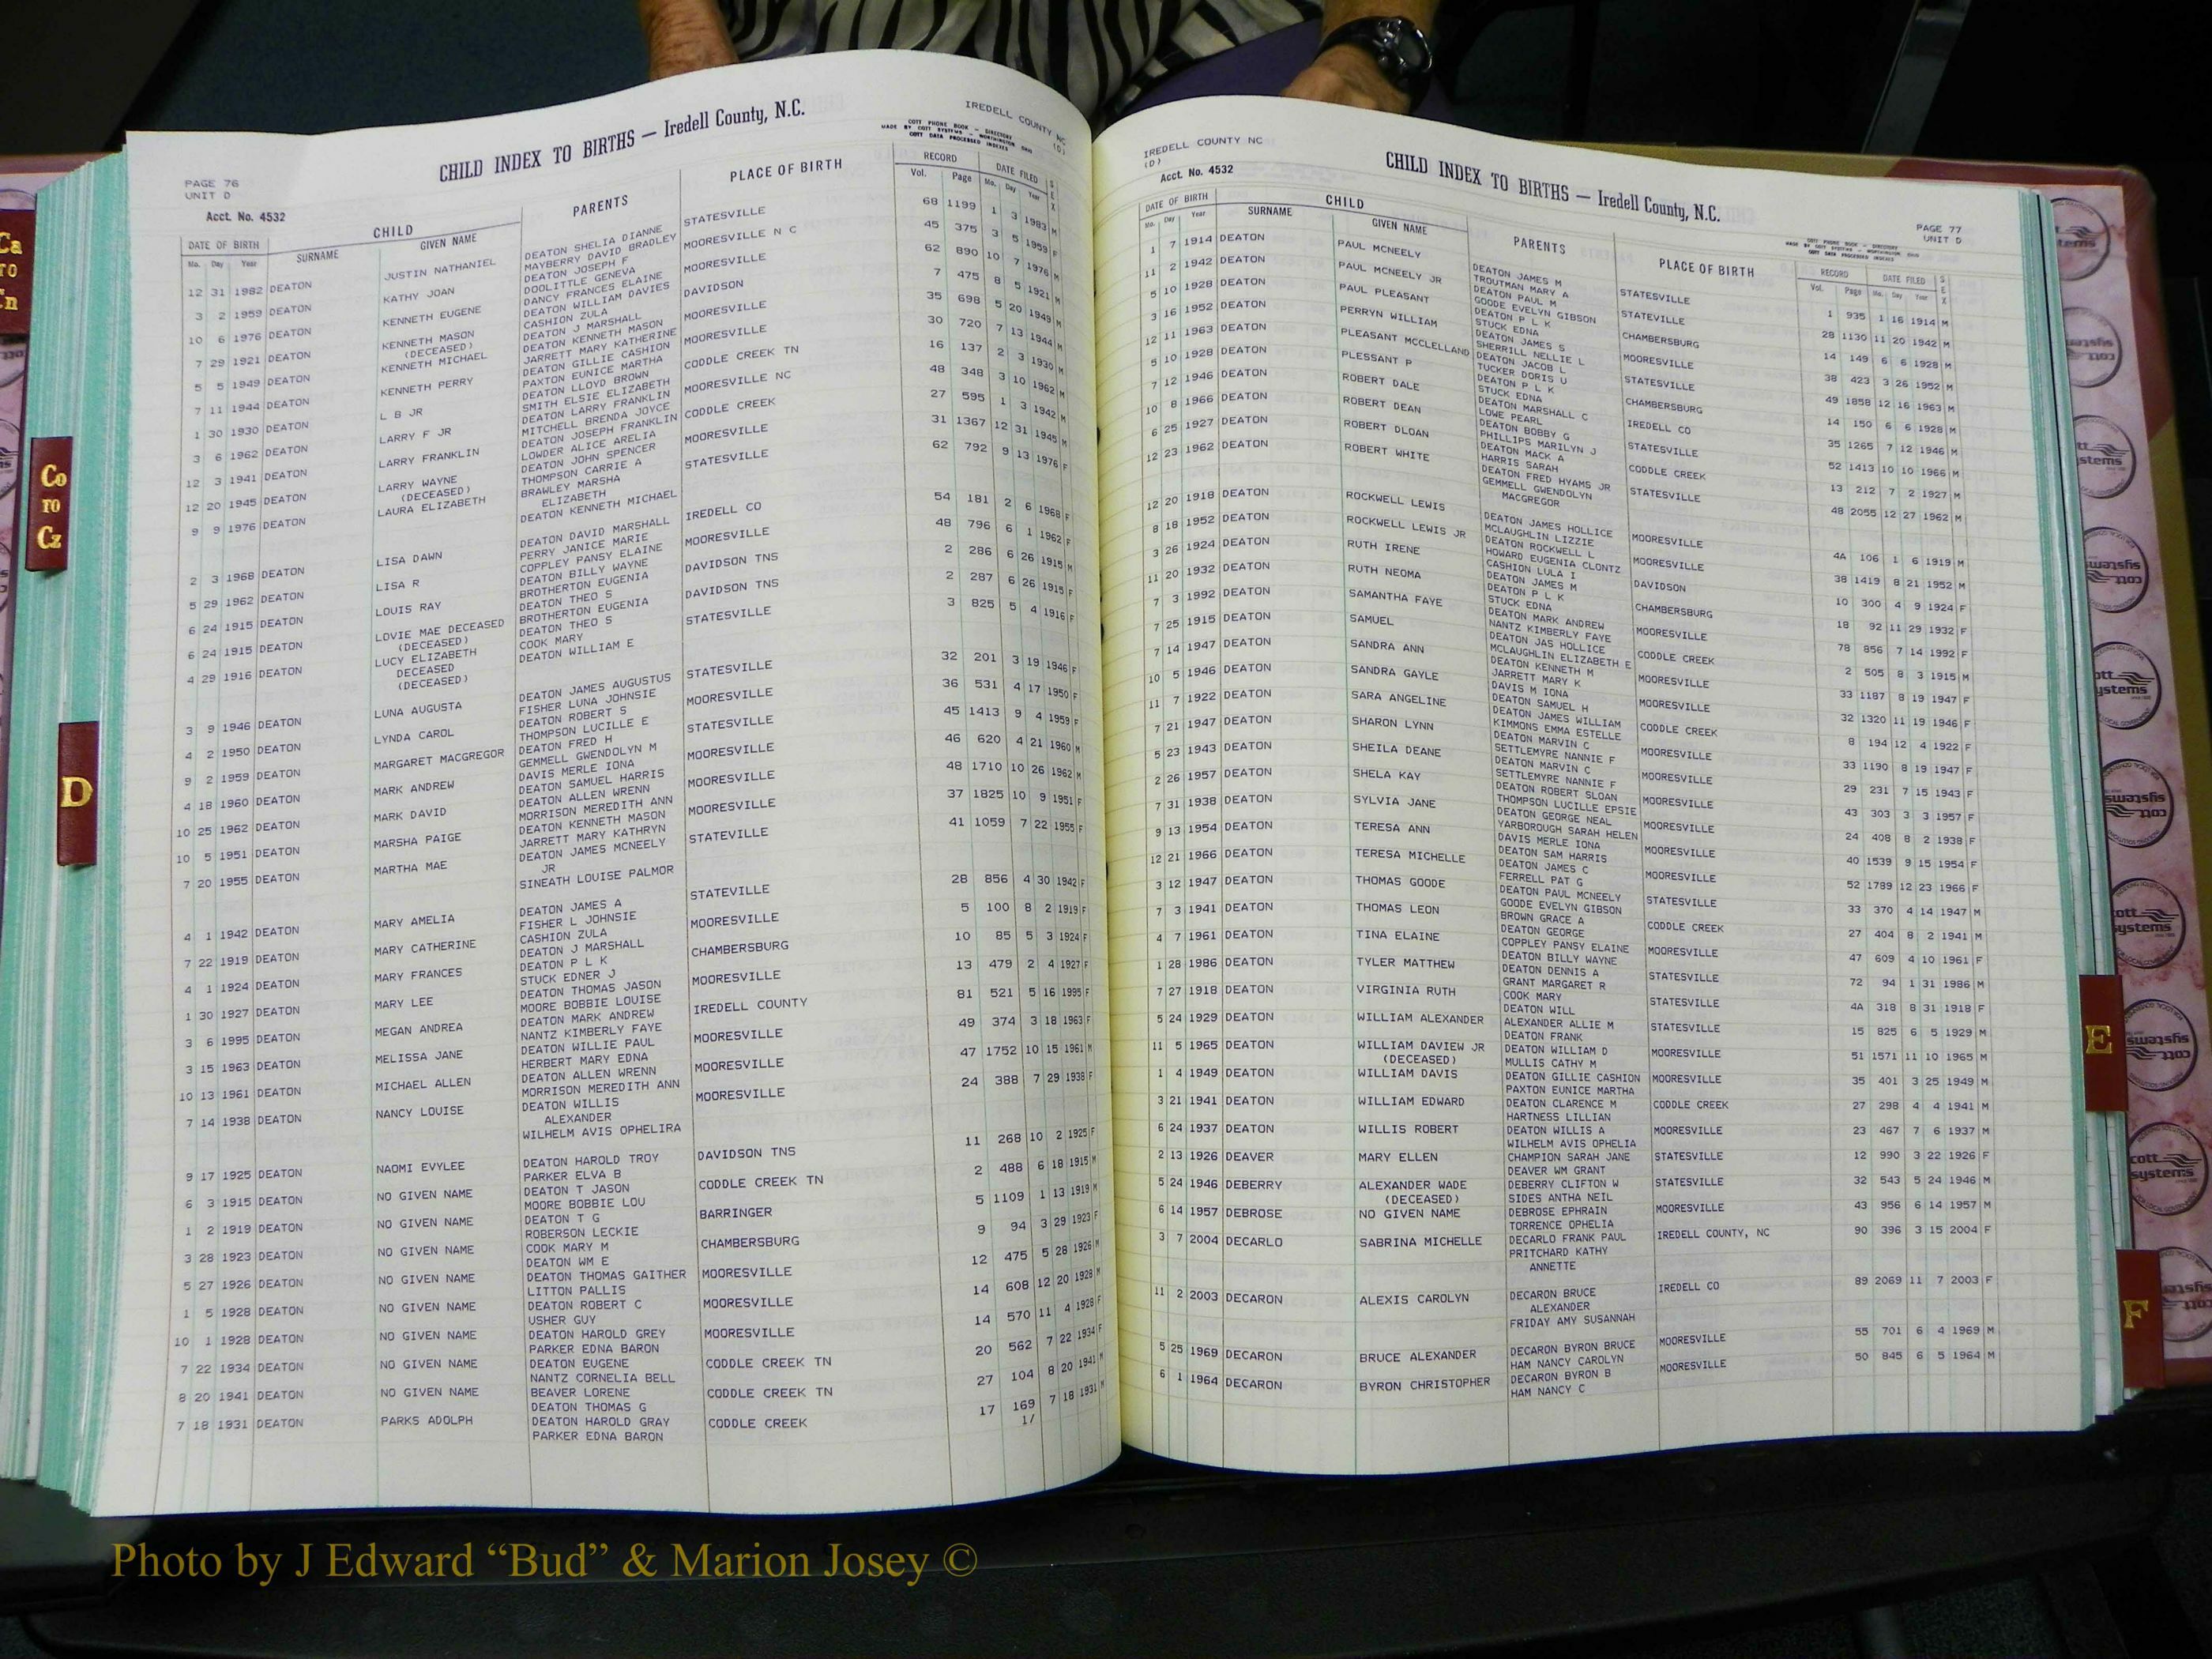 CHILD INDEX TO BIRTHS — Iredell County, N.C.
IREDELL COUNTY NC
(D)
COTT PHONE BOOK - DIRECTORY
MADE BY COTT SYSTEMS - WORTHINGTON OHIO
COTT DATA PROCESSED INDEXES
PAGE 76
UNIT D
Acct. No. 4532
DATE OF BIRTH CHILD PARENTS PLACE OF BIRTH RECORD DATE FILED SEX
Mo. Day Year SURNAME GIVEN NAME Vol. Page Mo. Day Year
12 31 1982 DEATON JUSTIN NATHANIEL DEATON SHELIA DIANNE STATESVILLE 68 1199 1 3 1983 M
MAYBERRY DAVID BRADLEY
3 2 1959 DEATON KATHY JOAN DEATON JOSEPH F MOORESVILLE N C 45 375 3 5 1959 F
DOOLITTLE GENEVA
10 6 1976 DEATON KENNETH EUGENE DANCY FRANCES ELAINE MOORESVILLE 62 890 10 7 1976 M
DEATON WILLIAM DAVIES
7 29 1921 DEATON KENNETH MASON CASHION ZULA DAVIDSON 7 475 8 5 1921 M
(DECEASED) DEATON J MARSHALL
5 5 1949 DEATON KENNETH MICHAEL DEATON KENNETH MASON MOORESVILLE 35 698 5 20 1949 M
JARRETT MARY KATHERINE
7 11 1944 DEATON KENNETH PERRY DEATON GILLIE CASHION MOORESVILLE 30 720 7 13 1944 M
PAXTON EUNICE MARTHA
1 30 1930 DEATON L B JR DEATON LLOYD BROWN CODDLE CREEK TN 16 137 2 3 1930 M
SMITH ELSIE ELIZABETH
3 6 1962 DEATON LARRY F JR DEATON LARRY FRANKLIN MOORESVILLE NC 48 348 3 10 1962 M
MITCHELL BRENDA JOYCE
12 3 1941 DEATON LARRY FRANKLIN DEATON JOSEPH FRANKLIN CODDLE CREEK 27 595 1 3 1942 M
LOWDER ALICE ARELIA
12 20 1945 DEATON LARRY WAYNE DEATON JOHN SPENCER MOORESVILLE 31 1367 12 31 1945 M
(DECEASED) THOMPSON CARRIE A
9 9 1976 DEATON LAURA ELIZABETH BRAWLEY MARSHA STATESVILLE 62 792 9 13 1976 F
ELIZABETH
DEATON KENNETH MICHAEL
2 3 1968 DEATON LISA DAWN DEATON DAVID MARSHALL IREDELL CO 54 181 2 6 1968 F
PERRY JANICE MARIE
5 29 1962 DEATON LISA R COPPLEY PANSY ELAINE MOORESVILLE 48 796 6 1 1962 F
DEATON BILLY WAYNE
6 24 1915 DEATON LOUIS RAY BROTHERTON EUGENIA DAVIDSON TNS 2 286 6 26 1915 M
DEATON THEO S
6 24 1915 DEATON LOVIE MAE DECEASED BROTHERTON EUGENIA DAVIDSON TNS 2 287 6 26 1915 F
(DECEASED) DEATON THEO S
4 29 1916 DEATON LUCY ELIZABETH COOK MARY STATESVILLE 3 825 5 4 1916 F
DECEASED DEATON WILLIAM E
(DECEASED)
3 9 1946 DEATON LUNA AUGUSTA DEATON JAMES AUGUSTUS STATESVILLE 32 201 3 19 1946 F
FISHER LUNA JOHNSIE
4 2 1950 DEATON LYNDA CAROL DEATON ROBERT S MOORESVILLE 36 531 4 17 1950 F
THOMPSON LUCILLE E
9 2 1959 DEATON MARGARET MACGREGOR DEATON FRED H STATESVILLE 45 1413 9 4 1959 F
GEMMELL GWENDOLYN M
4 18 1960 DEATON MARK ANDREW DAVIS MERLE IONA MOORESVILLE 46 620 4 21 1960 M
DEATON SAMUEL HARRIS
10 25 1962 DEATON MARK DAVID DEATON ALLEN WRENN MOORESVILLE 48 1710 10 26 1962 M
MORRISON MEREDITH ANN
10 5 1951 DEATON MARSHA PAIGE DEATON KENNETH MASON MOORESVILLE 37 1825 10 9 1951 F
JARRETT MARY KATHRYN
7 20 1955 DEATON MARTHA MAE DEATON JAMES MCNEELY STATEVILLE 41 1059 7 22 1955 F
JR
SINEATH LOUISE PALMOR
4 1 1942 DEATON MARY AMELIA DEATON JAMES A STATEVILLE 28 856 4 30 1942 F
FISHER L JOHNSIE
7 22 1919 DEATON MARY CATHERINE CASHION ZULA MOORESVILLE 5 100 8 2 1919 F
DEATON J MARSHALL
4 1 1924 DEATON MARY FRANCES DEATON P L K CHAMBERSBURG 10 85 5 3 1924 F
STUCK EDNER J
1 30 1927 DEATON MARY LEE DEATON THOMAS JASON MOORESVILLE 13 479 2 4 1927 F
MOORE BOBBIE LOUISE
3 6 1995 DEATON MEGAN ANDREA DEATON MARK ANDREW IREDELL COUNTY 81 521 5 16 1995 F
NANTZ KIMBERLY FAYE
3 15 1963 DEATON MELISSA JANE DEATON WILLIE PAUL MOORESVILLE 49 374 3 18 1963 F
HERBERT MARY EDNA
10 13 1961 DEATON MICHAEL ALLEN DEATON ALLEN WRENN MOORESVILLE 47 1752 10 15 1961 M
MORRISON MEREDITH ANN
7 14 1938 DEATON NANCY LOUISE DEATON WILLIS MOORESVILLE 24 388 7 29 1938 F
ALEXANDER
WILHELM AVIS OPHELIRA
9 17 1925 DEATON NAOMI EVYLEE DEATON HAROLD TROY DAVIDSON TNS 11 268 10 2 1925 F
PARKER ELVA B
6 3 1915 DEATON NO GIVEN NAME DEATON T JASON CODDLE CREEK TN 2 488 6 18 1915 M
MOORE BOBBIE LOU
1 2 1919 DEATON NO GIVEN NAME DEATON T G BARRINGER 5 1109 1 13 1919 M
ROBERSON LECKIE
3 28 1923 DEATON NO GIVEN NAME COOK MARY M CHAMBERSBURG 9 94 3 29 1923 F
DEATON WM E
5 27 1926 DEATON NO GIVEN NAME DEATON THOMAS GAITHER MOORESVILLE 12 475 5 28 1926 M
LITTON PALLIS
1 5 1928 DEATON NO GIVEN NAME DEATON ROBERT C MOORESVILLE 14 608 12 20 1928 M
USHER GUY
10 1 1928 DEATON NO GIVEN NAME DEATON HAROLD GREY MOORESVILLE 14 570 11 4 1928 F
PARKER EDNA BARON
7 22 1934 DEATON NO GIVEN NAME DEATON EUGENE CODDLE CREEK TN 20 562 7 22 1934 F
NANTZ CORNELIA BELL
8 20 1941 DEATON NO GIVEN NAME BEAVER LORENE CODDLE CREEK TN 27 104 8 20 1941 M
DEATON THOMAS G
7 18 1931 DEATON PARKS ADOLPH DEATON HAROLD GRAY CODDLE CREEK 17 169 7 18 1931 M
PARKER EDNA BARON 1/
IREDELL COUNTY NC
(D)
Acct. No. 4532
CHILD INDEX TO BIRTHS — Iredell County, N.C.
PAGE 77
UNIT D
COTT PHONE BOOK - DIRECTORY
MADE BY COTT SYSTEMS - WORTHINGTON OHIO
COTT DATA PROCESSED INDEXES
DATE OF BIRTH CHILD PARENTS PLACE OF BIRTH RECORD DATE FILED SEX
Mo. Day Year SURNAME GIVEN NAME Vol. Page Mo. Day Year
1 7 1914 DEATON PAUL MCNEELY DEATON JAMES M STATESVILLE 1 935 1 16 1914 M
TROUTMAN MARY A
11 2 1942 DEATON PAUL MCNEELY JR DEATON PAUL M STATEVILLE 28 1130 11 20 1942 M
GOODE EVELYN GIBSON
5 10 1928 DEATON PAUL PLEASANT DEATON P L K CHAMBERSBURG 14 149 6 6 1928 M
STUCK EDNA
3 16 1952 DEATON PERRYN WILLIAM DEATON JAMES S MOORESVILLE 38 423 3 26 1952 M
SHERRILL NELLIE L
12 11 1963 DEATON PLEASANT MCCLELLAND DEATON JACOB L STATESVILLE 49 1858 12 16 1963 M
TUCKER DORIS U
5 10 1928 DEATON PLESSANT P DEATON P L K CHAMBERSBURG 14 150 6 6 1928 M
STUCK EDNA
7 12 1946 DEATON ROBERT DALE DEATON MARSHALL C IREDELL CO 35 1265 7 12 1946 M
LOWE PEARL
10 8 1966 DEATON ROBERT DEAN DEATON BOBBY G STATESVILLE 52 1413 10 10 1966 M
PHILLIPS MARILYN J
6 25 1927 DEATON ROBERT DLOAN DEATON MACK A CODDLE CREEK 13 212 7 2 1927 M
HARRIS SARAH
12 23 1962 DEATON ROBERT WHITE DEATON FRED HYAMS JR STATESVILLE 48 2055 12 27 1962 M
GEMMELL GWENDOLYN
MACGREGOR
12 20 1918 DEATON ROCKWELL LEWIS DEATON JAMES HOLLICE MOORESVILLE 4A 106 1 6 1919 M
MCLAUGHLIN LIZZIE
8 18 1952 DEATON ROCKWELL LEWIS JR DEATON ROCKWELL L MOORESVILLE 38 1419 8 21 1952 M
HOWARD EUGENIA CLONTZ
3 26 1924 DEATON RUTH IRENE CASHION LULA I DAVIDSON 10 300 4 9 1924 F
DEATON JAMES M
11 20 1932 DEATON RUTH NEOMA DEATON P L K CHAMBERSBURG 18 92 11 29 1932 F
STUCK EDNA
7 3 1992 DEATON SAMANTHA FAYE DEATON MARK ANDREW MOORESVILLE 78 856 7 14 1992 F
NANTZ KIMBERLY FAYE
7 25 1915 DEATON SAMUEL DEATON JAS HOLLICE CODDLE CREEK 2 505 8 3 1915 M
MCLAUGHLIN ELIZABETH E
7 14 1947 DEATON SANDRA ANN DEATON KENNETH M MOORESVILLE 33 1187 8 19 1947 F
JARRETT MARY K
10 5 1946 DEATON SANDRA GAYLE DAVIS M IONA MOORESVILLE 32 1320 11 19 1946 F
DEATON SAMUEL H
11 7 1922 DEATON SARA ANGELINE DEATON JAMES WILLIAM CODDLE CREEK 8 194 12 4 1922 F
KIMMONS EMMA ESTELLE
7 21 1947 DEATON SHARON LYNN DEATON MARVIN C MOORESVILLE 33 1190 8 19 1947 F
SETTLEMYRE NANNIE F
5 23 1943 DEATON SHEILA DEANE DEATON MARVIN C MOORESVILLE 29 231 7 15 1943 F
SETTLEMYRE NANNIE F
2 26 1957 DEATON SHELA KAY DEATON ROBERT SLOAN MOORESVILLE 43 303 3 3 1957 F
THOMPSON LUCILLE EPSIE
7 31 1938 DEATON SYLVIA JANE DEATON GEORGE NEAL MOORESVILLE 24 408 8 2 1938 F
YARBOROUGH SARAH HELEN
9 13 1954 DEATON TERESA ANN DAVIS MERLE IONA MOORESVILLE 40 1539 9 15 1954 F
DEATON SAM HARRIS
12 21 1966 DEATON TERESA MICHELLE DEATON JAMES C MOORESVILLE 52 1789 12 23 1966 F
FERRELL PAT G
3 12 1947 DEATON THOMAS GOODE DEATON PAUL MCNEELY STATESVILLE 33 370 4 14 1947 M
GOODE EVELYN GIBSON
7 3 1941 DEATON THOMAS LEON BROWN GRACE A CODDLE CREEK 27 404 8 2 1941 M
DEATON GEORGE
4 7 1961 DEATON TINA ELAINE COPPLEY PANSY ELAINE MOORESVILLE 47 609 4 10 1961 F
DEATON BILLY WAYNE
1 28 1986 DEATON TYLER MATTHEW DEATON DENNIS A STATESVILLE 72 94 1 31 1986 M
GRANT MARGARET R
7 27 1918 DEATON VIRGINIA RUTH COOK MARY STATESVILLE 4A 318 8 31 1918 F
DEATON WILL
5 24 1929 DEATON WILLIAM ALEXANDER ALEXANDER ALLIE M STATESVILLE 15 825 6 5 1929 M
DEATON FRANK
11 5 1965 DEATON WILLIAM DAVIEW JR DEATON WILLIAM D MOORESVILLE 51 1571 11 10 1965 M
(DECEASED) MULLIS CATHY M
1 4 1949 DEATON WILLIAM DAVIS DEATON GILLIE CASHION MOORESVILLE 35 401 3 25 1949 M
PAXTON EUNICE MARTHA
3 21 1941 DEATON WILLIAM EDWARD DEATON CLARENCE M CODDLE CREEK 27 298 4 4 1941 M
HARTNESS LILLIAN
6 24 1937 DEATON WILLIS ROBERT DEATON WILLIS A MOORESVILLE 23 467 7 6 1937 M
WILHELM AVIS OPHELIA
2 13 1926 DEAVER MARY ELLEN CHAMPION SARAH JANE STATESVILLE 12 990 3 22 1926 F
DEAVER WM GRANT
5 24 1946 DEBERRY ALEXANDER WADE DEBERRY CLIFTON W STATESVILLE 32 543 5 24 1946 M
(DECEASED) SIDES ANTHA NEIL
6 14 1957 DEBROSE NO GIVEN NAME DEBROSE EPHRAIN MOORESVILLE 43 956 6 14 1957 M
TORRENCE OPHELIA
3 7 2004 DECARLO SABRINA MICHELLE DECARLO FRANK PAUL IREDELL COUNTY, NC 90 396 3 15 2004 F
PRITCHARD KATHY
ANNETTE
11 2 2003 DECARON ALEXIS CAROLYN DECARON BRUCE IREDELL CO 89 2069 11 7 2003 F
ALEXANDER
FRIDAY AMY SUSANNAH
5 25 1969 DECARON BRUCE ALEXANDER DECARON BYRON BRUCE MOORESVILLE 55 701 6 4 1969 M
HAM NANCY CAROLYN
6 1 1964 DECARON BYRON CHRISTOPHER DECARON BYRON B MOORESVILLE 50 845 6 5 1964 M
HAM NANCY C
Ca
TO
Cn
Co
TO
Cz
D
E
F
cott
systems
Photo by J Edward “Bud” & Marion Josey ©